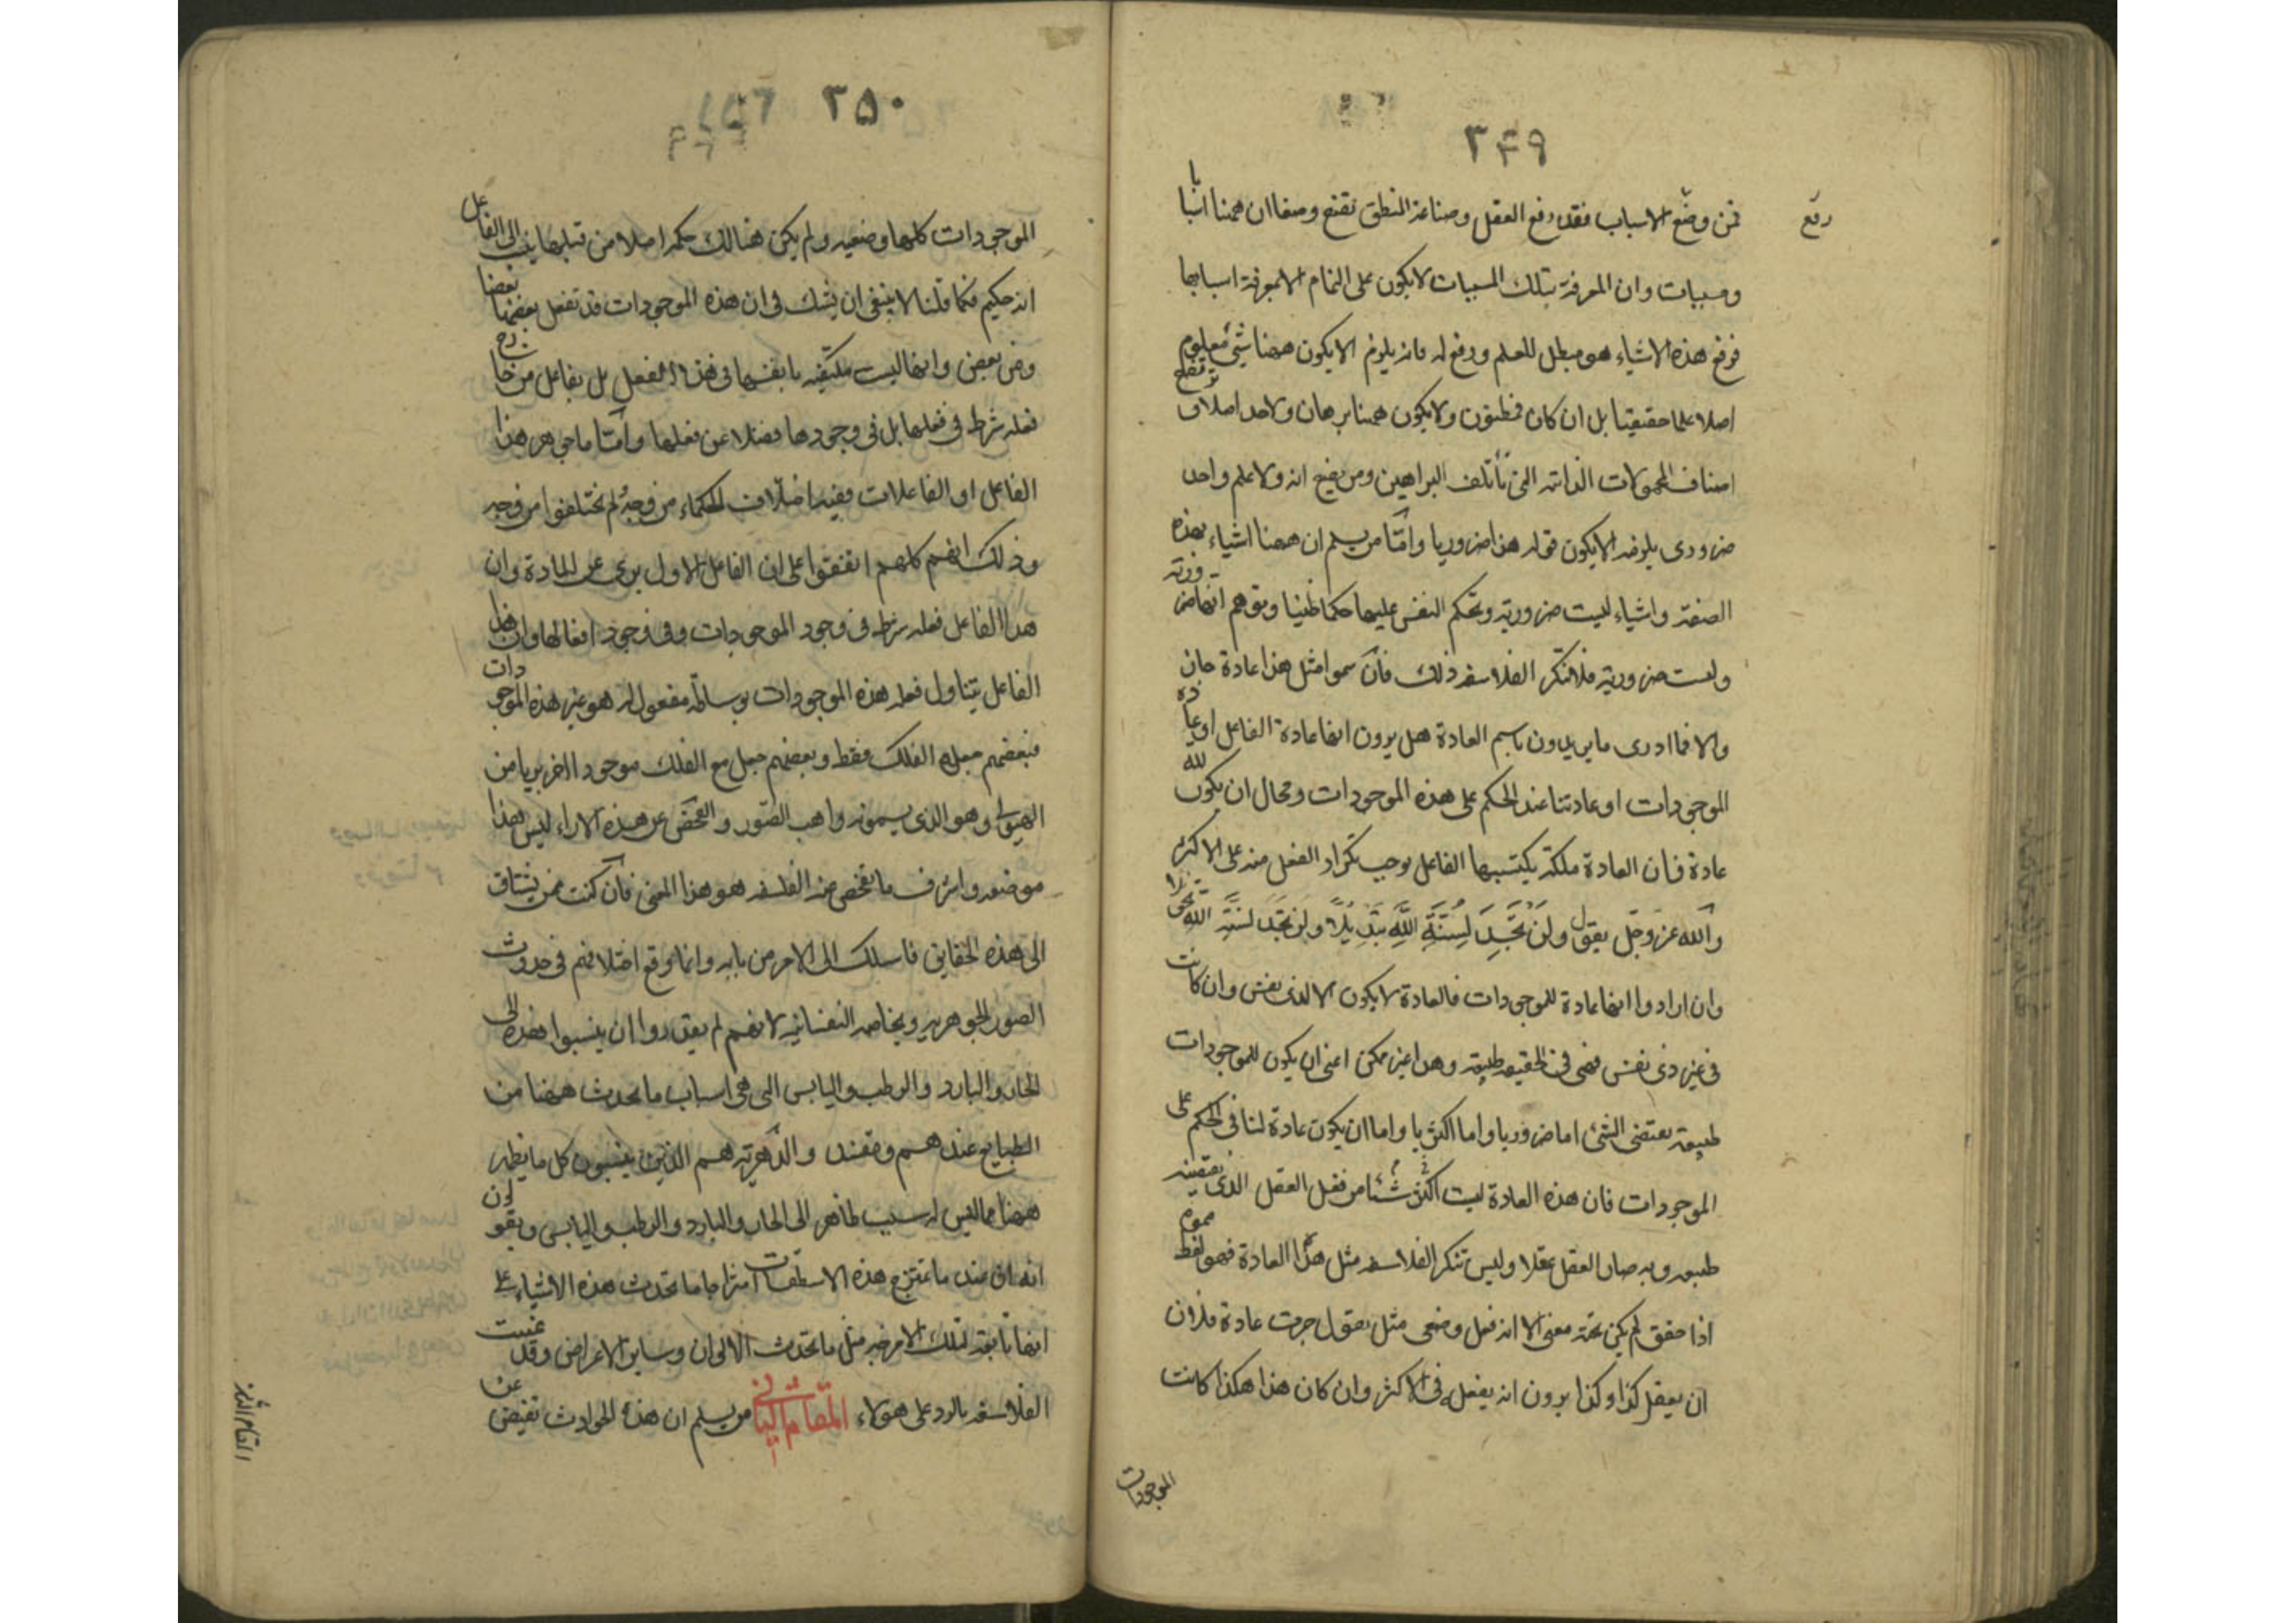 ٣٤٩
رفع
فمن وضع الاسباب فقد رفع العقل وصناعة المنطق تقتضى وضعا ان ههنا اسبابا
ومسببات وان المعرفة بتلك المسببات لا يكون على التمام الا بمعرفة اسبابها
فرفع هذه الاشياء هو مبطل للعلم ورفع له فانه يلزم الا يكون ههنا شئ معلوم
اصلا علما حقيقيا بل ان كان فمظنون ولا يكون ههنا برهان ولا حد اصلا وترتفع
اصناف المحمولات الذاتيه التى تأتلف البراهين ومن يضع انه ولا علم واحد
ضرورى يلزمه الا يكون قوله هذا ضروريا وامّا من يسلم ان ههنا اشياء بهذه
الصفة واشياء ليست ضرورية وتحكم النفس عليها حكما ظنيا وتوهم انها ضرورية
وليست ضرورية فلا تنكر الفلاسفه ذلك فان سموا مثل هذا عادة جاز
والا فما ادرى ما يريدون باسم العادة هل يرون انها عادة الفاعل او عادة
الموجودات او عادتنا عند الحكم على هذه الموجودات ومحال ان يكون لله
عادة فان العادة ملكة يكتسبها الفاعل يوجب تكرار الفعل منه على الاكثر
والله عز وجل يقول ولن تجد لسنة الله تبديلا ولن تجد لسنة الله تحويلا
وان ارادوا انها عادة للموجودات فالعادة لا يكون الا لذى نفس وان كانت
فى غير ذى نفس فهى فى الحقيقه طبيعة وهذا غير ممكن اعنى ان يكون للموجودات
طبيعة يقتضى الشئ اما ضروريا واما اكثريا واما ان يكون عادة لنا فى الحكم على
الموجودات فان هذه العادة ليست اكثر شئا من فعل العقل الذى يقتضيه
طبعه وبه صار العقل عقلا وليس تنكر الفلاسفه مثل هذا العادة فهو لفظ مموه
اذا حقق لم يكن تحته معنى الا انه فعل وضعى مثل يقول جرت عادة فلان
ان يفعل كذا وكذا يرون انه يفعله فى الاكثر وان كان هذا هكذا كانت
الموجودات
٢٥٠
الموجودات كلها وضعيه ولم يكن هنالك حكمه اصلا من قبلها ينسب الى الفاعل
انه حكيم فكما قلنا لا ينبغى ان يشك فى ان هذه الموجودات قد تفعل بعضها بعضا
ومن بعض وانها ليست مكتفيه بانفسها فى هذا الفعل بل بفاعل من خارج
فعله شرط فى فعلها بل فى وجودها فضلا عن فعلها وامّا ما جوهر هذا
الفاعل او الفاعلات ففيه اختلاف الحكماء من وجه ولم يختلفوا من وجه
وذلك انهم كلهم اتفقوا على ان الفاعل الاول برى عن المادة وان
هذا الفاعل فعله شرط فى وجود الموجودات وفى وجود افعالها وان هذا
الفاعل يتناول فعله هذه الموجودات بوساطة مفعول له هو غير هذه الموجودات
فبعضهم جعله الفلك فقط وبعضهم جعل مع الفلك موجودا اخر بريا من
الهيولى وهو الذى يسمونه واهب الصّور والفحص عن هذه الاراء ليس هذا
موضعه واشرف ما يفحص عنه الفلسفه هو هذا المعنى فان كنت ممن يشتاق
الى هذه الحقايق فاسلك الى الامر من بابه وانما وقع اختلافهم فى حدوث
الصور الجوهريه وبخاصه النفسانيه لانهم لم يقدروا ان ينسبوا هذه الى
الحار والبارد والرطب واليابس التى هى اسباب ما يحدث ههنا من
الطبايع عندهم وتفسد والدّهريّه هم الذين ينسبون كل ما يظهر
ههنا مما ليس له سبب ظاهر الى الحار والبارد والرطب واليابس ويقولون
انه ان عند ما تمتزج هذه الاسطقسات امتزاجا ما تحدث هذه الاشياء على
انها تابعة لتلك الامزجه مثل ما تحدث الالوان وساير الاعراض وقد عنيت
الفلاسفه بالرد على هولاء المقام الثانى من يسلم ان هذه الحوادث تفيض عن